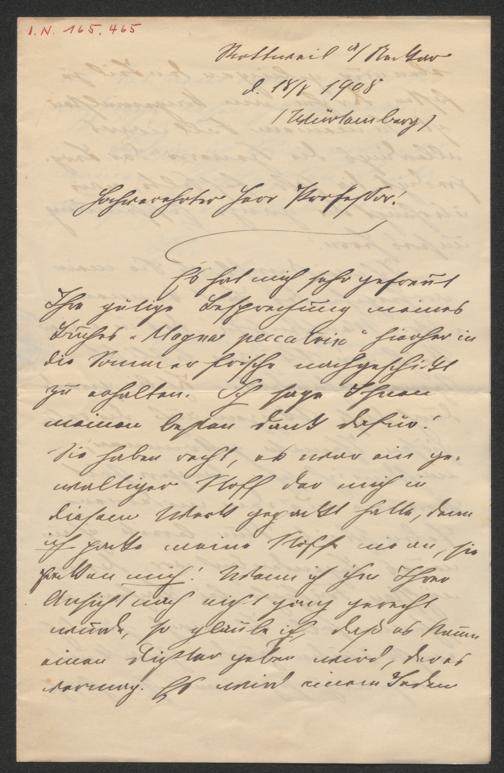 I.N. 165.465
Rottweil a/Neckar
d. 18/8 1908
(Würtemberg)
Hochverehrter Herr Professor!
Es hat mich sehr gefreut
Ihre gütige Besprechung meines
Buches „Magna peccatrix" hierher in
die Sommerfrische nachgeschickt
zu erhalten. Ich sage Ihnen
meinen besten Dank dafür!
Sie haben recht, es war ein ge-
waltiger Stoff der mich in
diesem Werk gepackt hatte, denn
ich packe meine Stoffe nie an, sie
packen mich! Wenn ich ihm Ihrer
Ansicht nach nicht ganz gerecht
wurde, so glaube ich, daß es kaum
einen Dichter geben wird, der es
vermag. Es wird einem Jeden